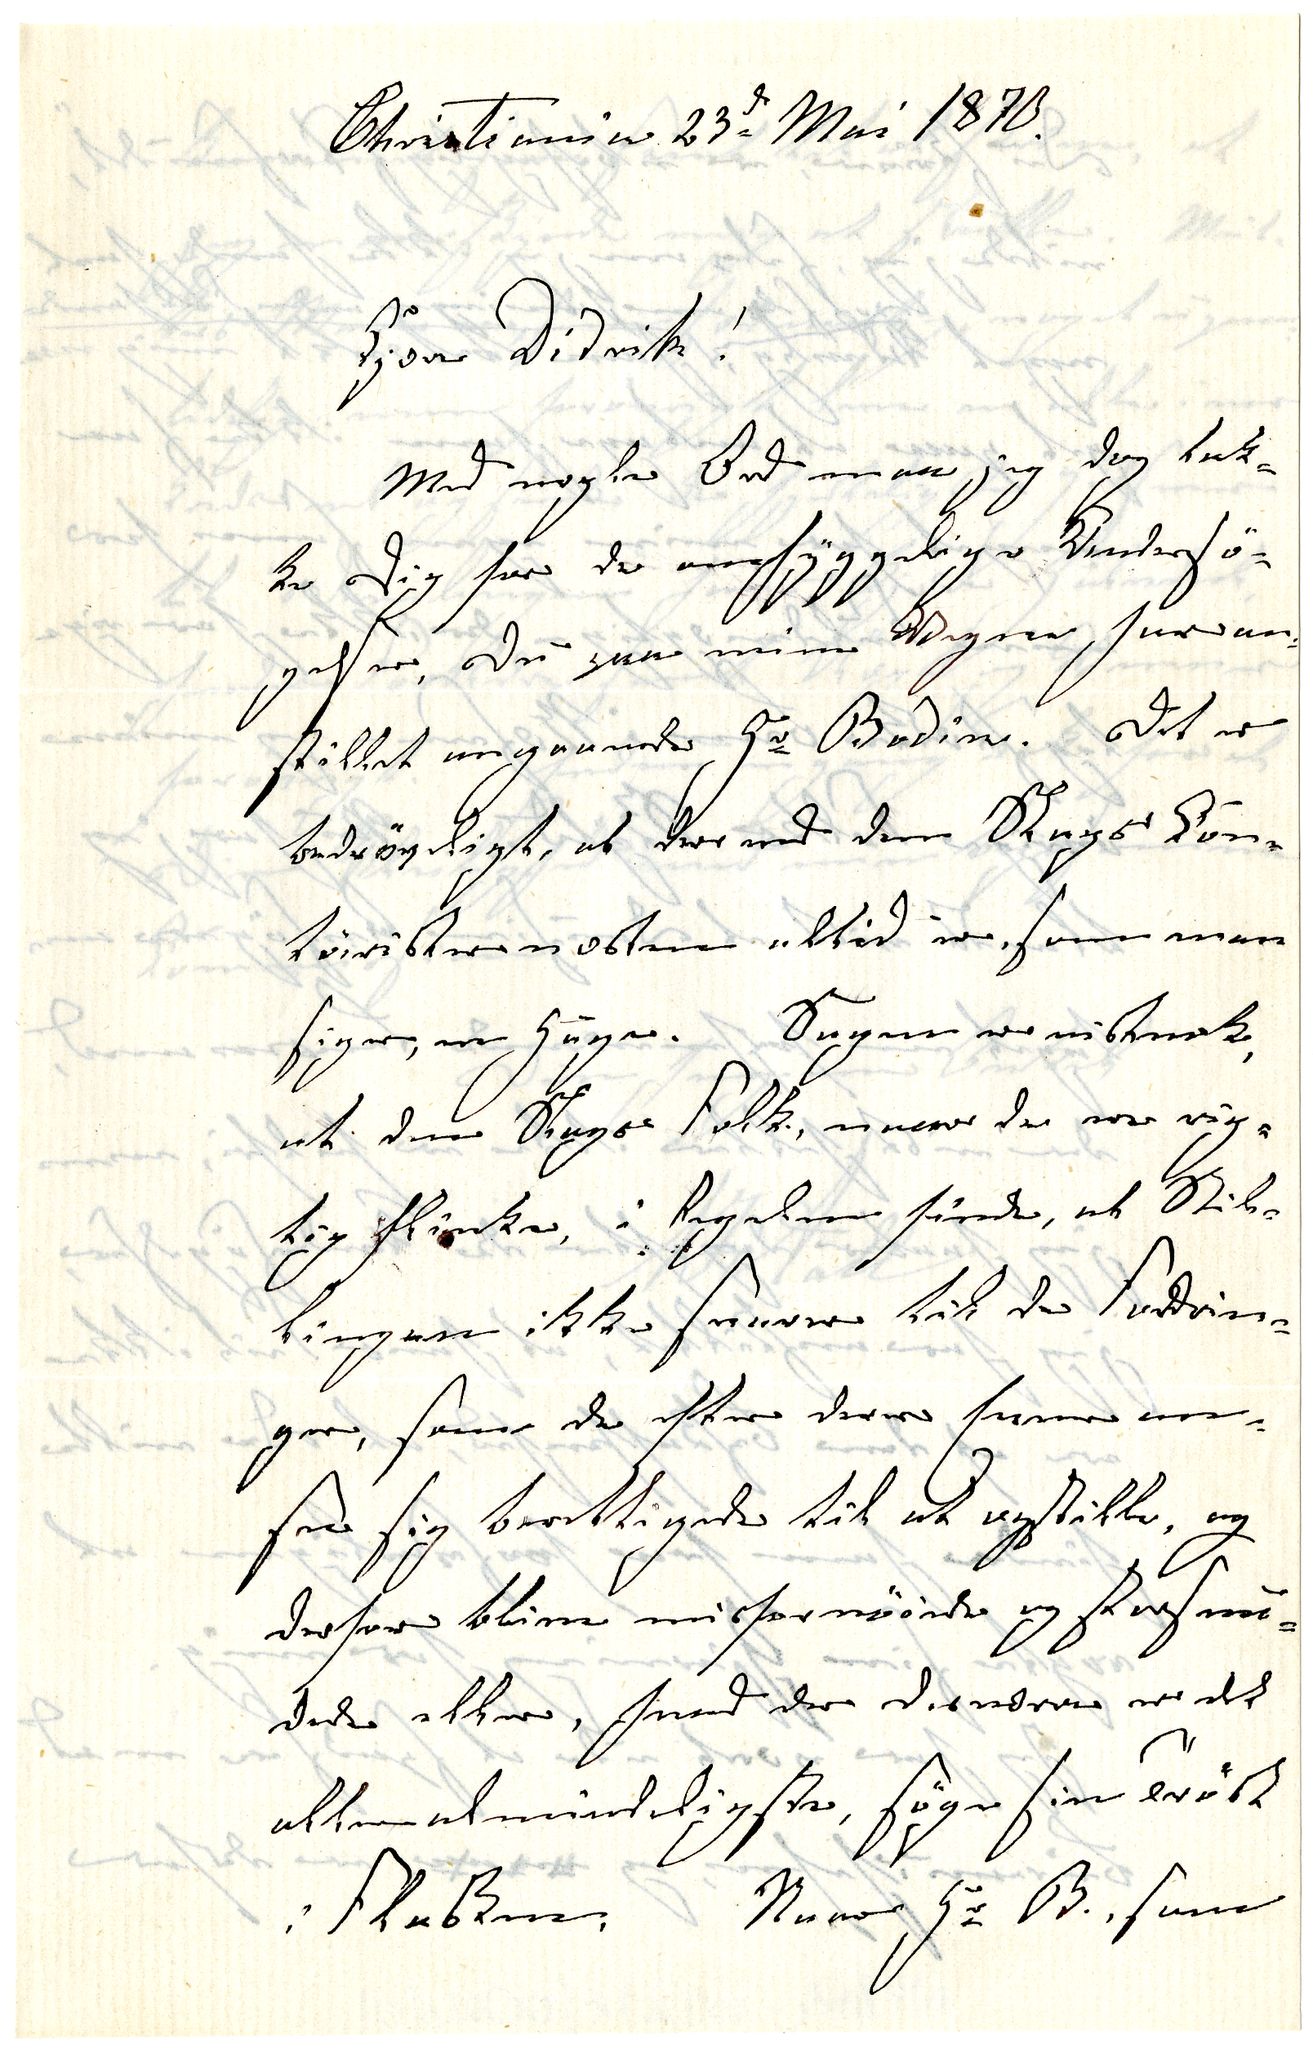 Christiania 23d Mai 1870.
Kjære Didrik!
Med nogle Ord maa jeg dog tak-
ke Dig for de omhyggelige Undersö-
gelser, Du paa mine Vegne har an-
stillet angaaende Hr Bodin. Det er
bedröveligt, at der ved den Slags Kon-
torister næsten altid er, som man
siger, en Hage. Sagen er vistnok,
at den Slags Folk, naar de ere rig-
tig flinke, i Regelen finde, at Stil-
lingen ikke svarer til de Fordrin-
ger, som de efter deres Evner an-
see sig berettigede til at opstille, og
derfor blive misfornöiede og
eller, hvad der desværre er det
allermindeligste, söge sin Tröst
i Flasken. Naar Hr B., som